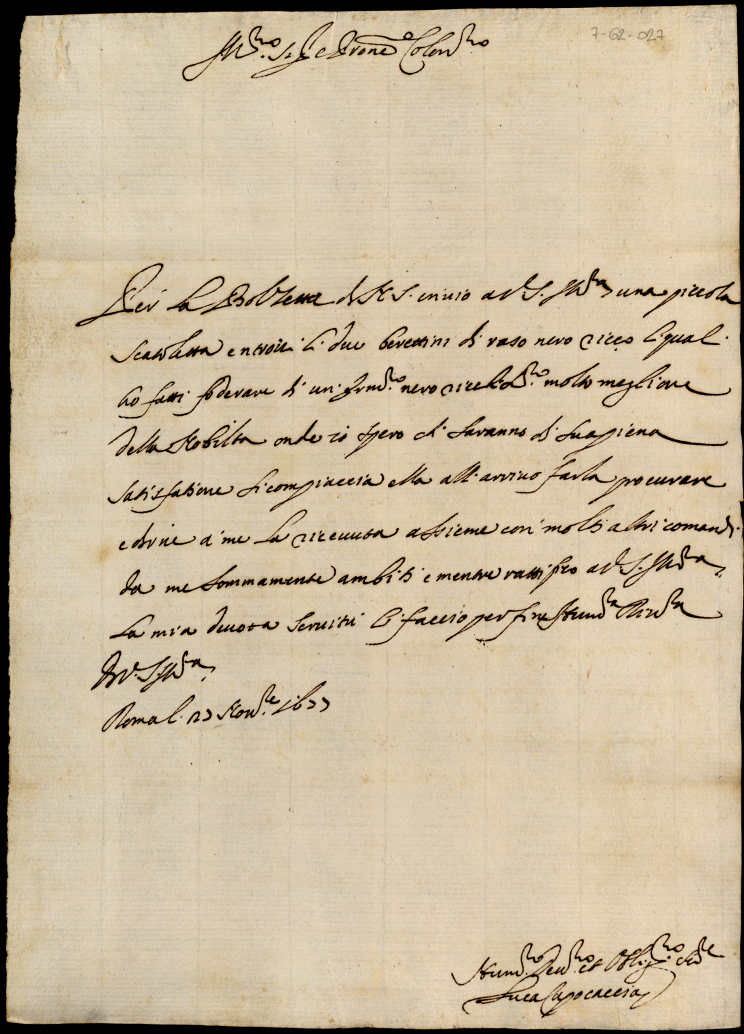 7-62-027
Ill.mo Sig.r e P.rone Col.mo
Per la di N. S. invio a V. S. Ill.ma una piccola
scatoletta entrovi li due berettini di raso nero riccio li quali
ho fatti foderare di un nero molto megliore
della Nobiltà onde io spero che saranno di sua piena
satisfatione si compiaccia ella all'arrivo farla procurare
e darne a me la ricevuta assieme con molti altri comandi
da me sommamente ambiti e mentre ratifico a V. S. Ill.ma
la mia devota servitù li faccio per fine Hum.ma Riv.za
Di V. S. Ill.ma
Roma li 27 Nov.re 1677
Hum.mo Dev.mo et Obl.mo Ser.re
Luca Capocaccia